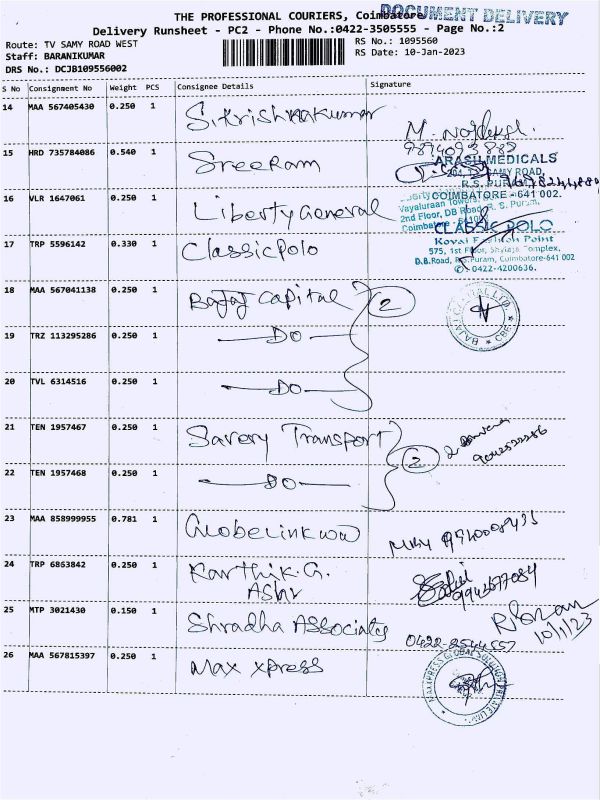 DOCUMENT DELIVERY
THE PROFESSIONAL COURIERS, Coimbatore
Delivery Runsheet - PC2 - Phone No.:0422-3505555 - Page No.:2
Route: TV SAMY ROAD WEST
RS No.: 1095560
Staff: BARANIKUMAR
RS Date: 10-Jan-2023
DRS No.: DCJB109556002
S No Consignment No Weight PCS Consignee Details Signature
14 MAA 567405430 0.250 1 S. Krishnakumar
M.
15 HRD 735784086 0.540 1 Sreeram
ARASU MEDICALS
SAMY ROAD,
R.S. PURAM
COIMBATORE - 641 002.
16 VLR 1647061 0.250 1 Liberty General
Vayaluraan Towers
2nd Floor, DB Road, R. S. Puram,
Coimbatore
17 TRP 5596142 0.330 1 Classic Polo
CLASSIC POLO
Koval Fashion Point
575, 1st Floor, Shylaja Complex,
D.B.Road, R.S.Puram, Coimbatore-641 002
0422-4200636.
18 MAA 567041138 0.250 1 Bajaj Capital 2
BAJAJ CAPITAL LTD CBE
19 TRZ 113295286 0.250 1 DO
20 TVL 6314516 0.250 1 DO
21 TEN 1957467 0.250 1 Savery Transport 2
22 TEN 1957468 0.250 1 DO
23 MAA 858999955 0.781 1 Globelink
24 TRP 6863842 0.250 1 Karthik G.
25 MTP 3021430 0.150 1 Shradha Associats
10/1/23
26 MAA 567815397 0.250 1 Max xpress
MAXXPRESS GLOBAL